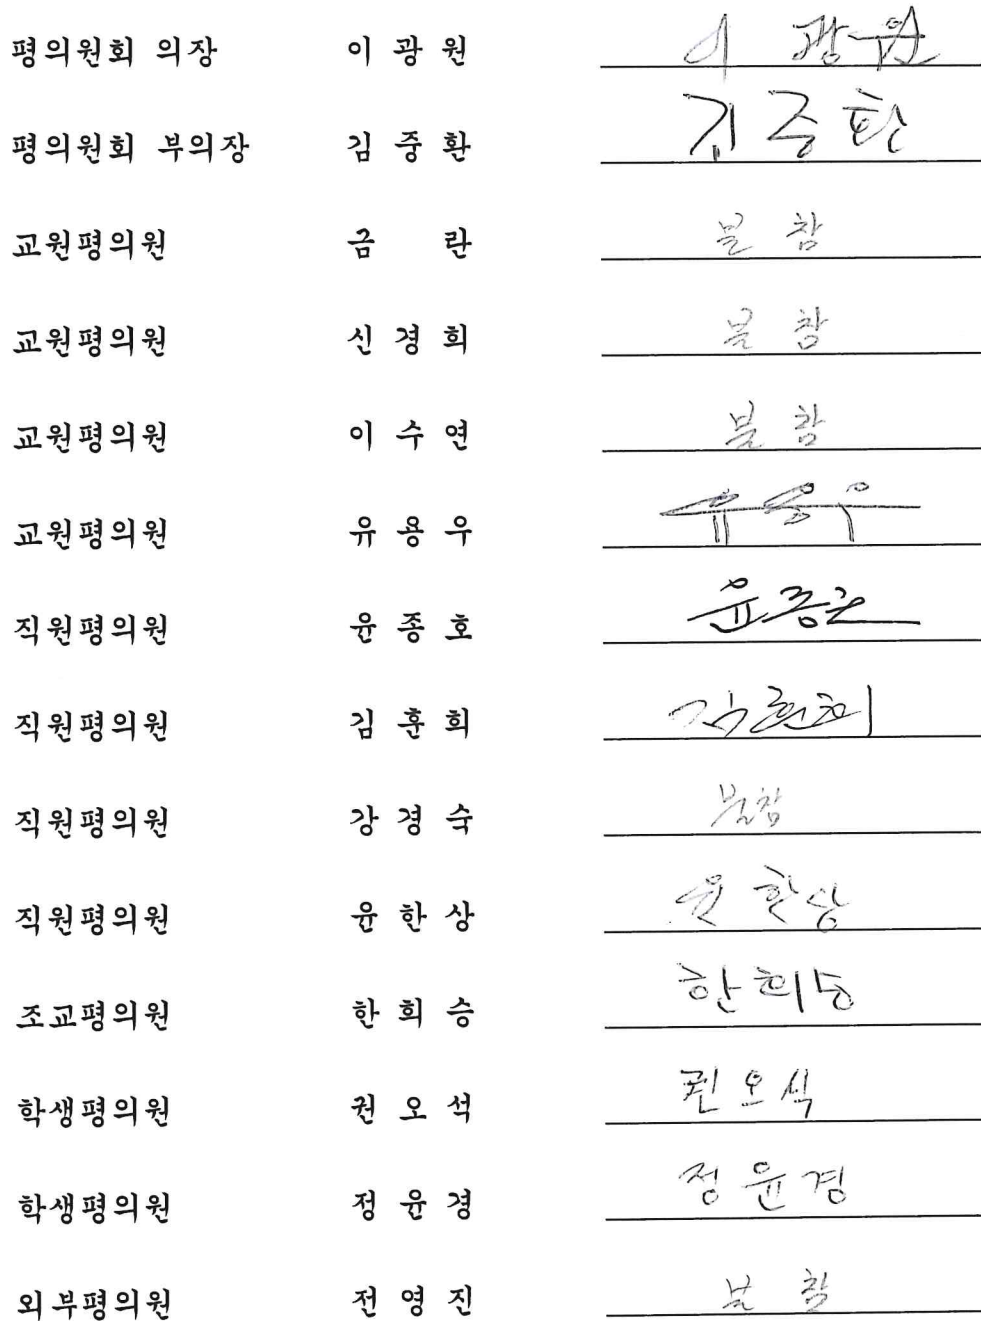 평의원회 의장 이 광 원 이 광 원
평의원회 부의장 김 중 환 김 중 환
교원평의원 금 란 불 참
교원평의원 신 경 희 불 참
교원평의원 이 수 연 불 참
교원평의원 유 용 우 유 용 우
직원평의원 윤 종 호 윤종호
직원평의원 김 훈 희 김훈희
직원평의원 강 경 숙 불참
직원평의원 윤 한 상 윤 한 상
조교평의원 한 희 승 한 희 승
학생평의원 권 오 석 권 오 석
학생평의원 정 윤 경 정 윤 경
외부평의원 전 영 진 불 참